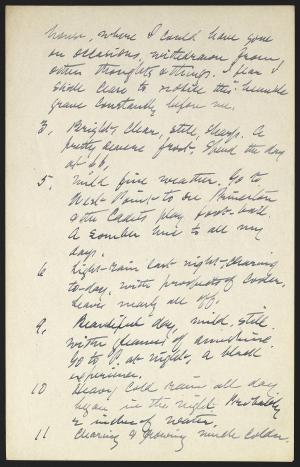 hours, where I could have gone
on occasions, withdrawn from
other thoughts & things. I fear I
shall have to rotate this humble
grave constantly before me.
3, Bright, clear, still, sharp. A
pretty severe frost. Spend the day
at 66,
5, Mild fine weather. Go to
West Point to see Princeton
& the Cadets play foot-ball.
A somber hue to all my
days.
6 Light rain last night, clearing
to-day, with prospects of colder,
leaves nearly all off.
9, Beautiful day, mild, still,
with gleams of sunshine.
Go to P. at night, a bleak
experience.
10 Heavy cold rain all day,
began in the night. Probably
2 inches of water.
11 Clearing & growing much colder.